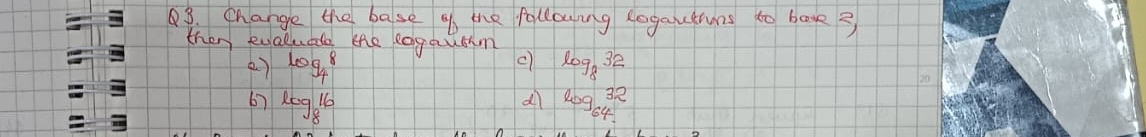 Q3. Change the base of the following logarithms to base 2,
then evaluate the logarithm
a) log₄8 c) log₈32
b) log₈16 d) log₆₄32